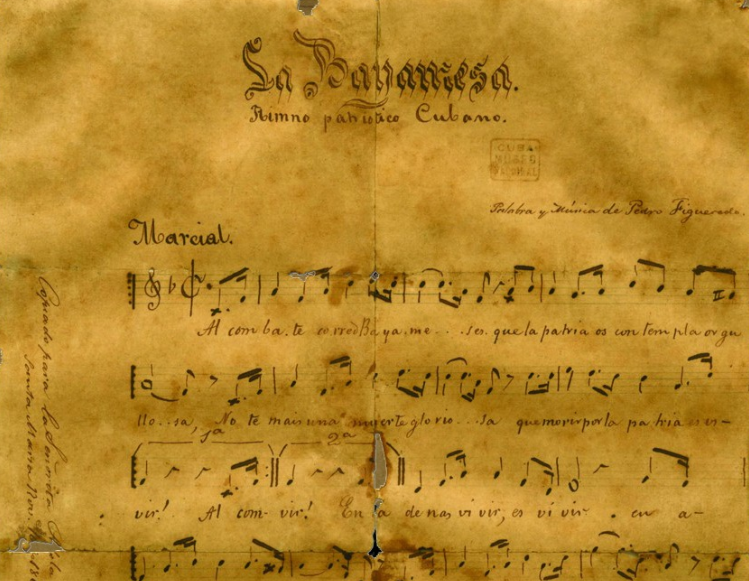 La Bayamesa.
Himno patriotico Cubano.
CUBA
MUSEO
NACIONAL
Palabra y Música de Pedro Figueredo.
Marcial.
Al comba.te corred Ba ya.me...ses. que la patria os contempla orgu
llo..sa, No te mais una muerte glorio...sa que morir por la pa tria es
1a 2a
vir! Al com- vir! En ca de nas vi vir, es vi vir . en a-
Copiado para la Señorita